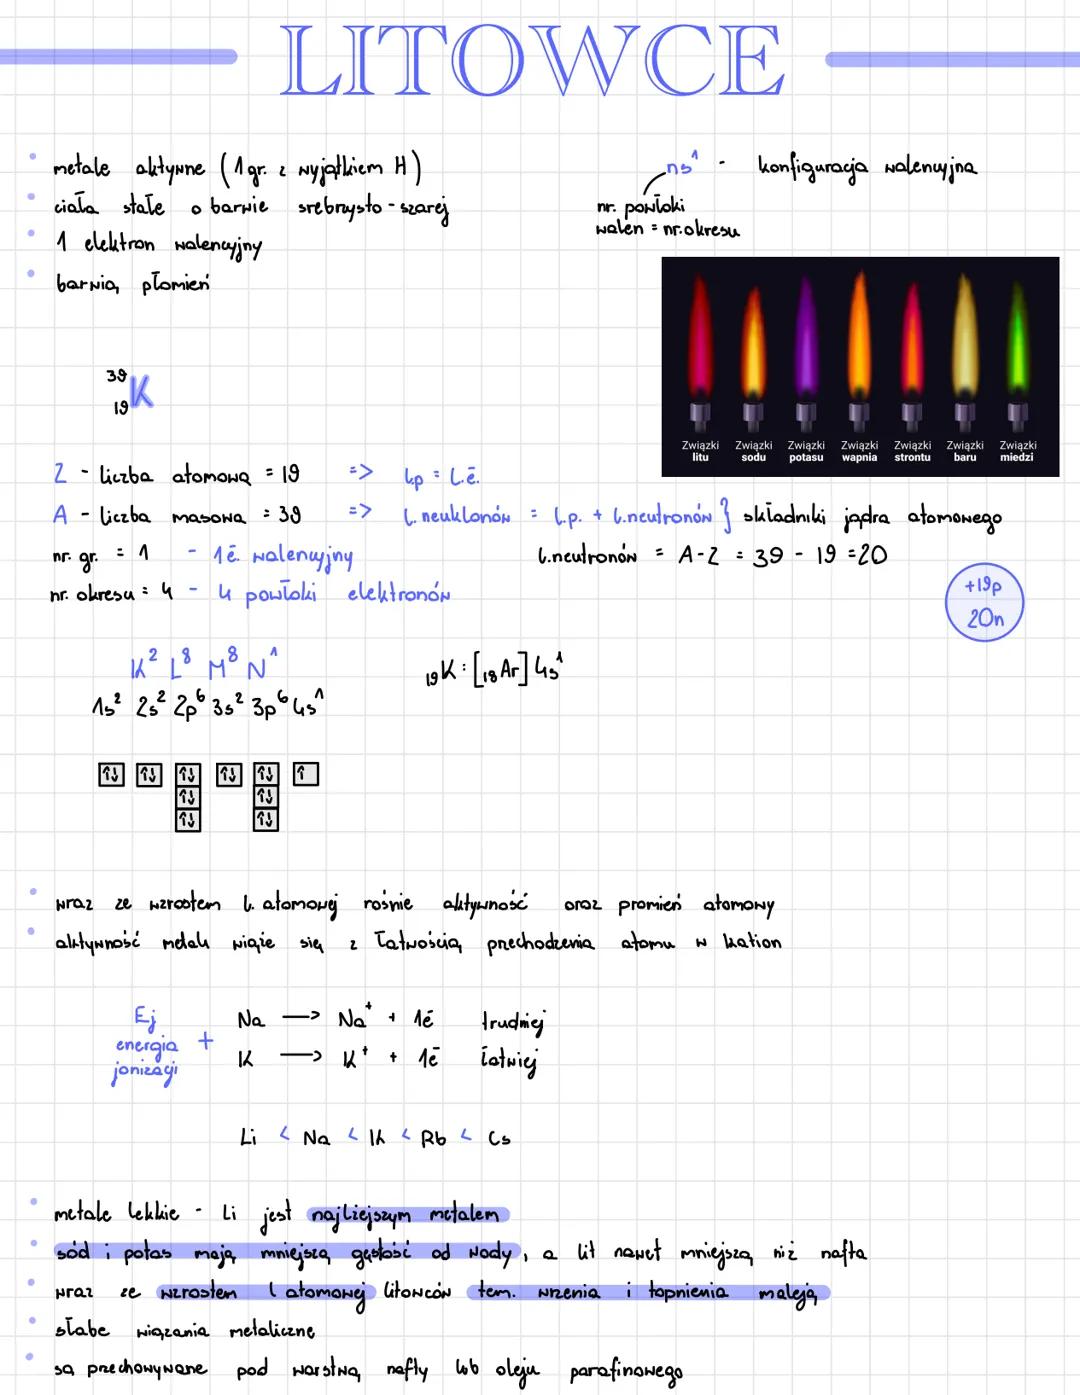 LITOWCE
metale aktywne (1 gr. z wyjątkiem H)
ciała stałe o barwie srebrzysto-szarej
1 elektron walencyjny
barwią płomień
ns¹ - konfiguracja walencyjna
nr. powłoki
walen = nr. okresu
Związki litu
Związki sodu
Związki potasu
Związki wapnia
Związki strontu
Związki baru
Związki miedzi
39
19 K
Z - liczba atomowa = 19 => l.p = l.ē.
A - liczba masowa = 39 => l. neuklonów = l.p. + l.neutronów } składniki jądra atomowego
nr. gr. = 1 - 1ē. walencyjny
l.neutronów = A-Z = 39 - 19 = 20
nr. okresu = 4 - 4 powłoki elektronów
+19p
20n
K² L⁸ M⁸ N¹
1s² 2s² 2p⁶ 3s² 3p⁶ 4s¹
₁₉K: [₁₈Ar] 4s¹
↑↓ ↑↓ ↑↓ ↑↓ ↑↓ ↑
↑↓ ↑↓
↑↓ ↑↓
wraz ze wzrostem l. atomowej rośnie aktywność oraz promień atomowy
aktywność metali wiąże się z łatwością przechodzenia atomu w kation
Ej
energia
jonizacji
+
Na —> Na⁺ + 1ē trudniej
K —> K⁺ + 1ē łatwiej
Li < Na < K < Rb < Cs
metale lekkie - Li jest najlżejszym metalem
sód i potas mają mniejszą gęstość od wody, a lit nawet mniejszą niż nafta
wraz ze wzrostem l atomowej litowców tem. wrzenia i topnienia maleją
słabe wiązania metaliczne
są przechowywane pod warstwą nafty lub oleju parafinowego